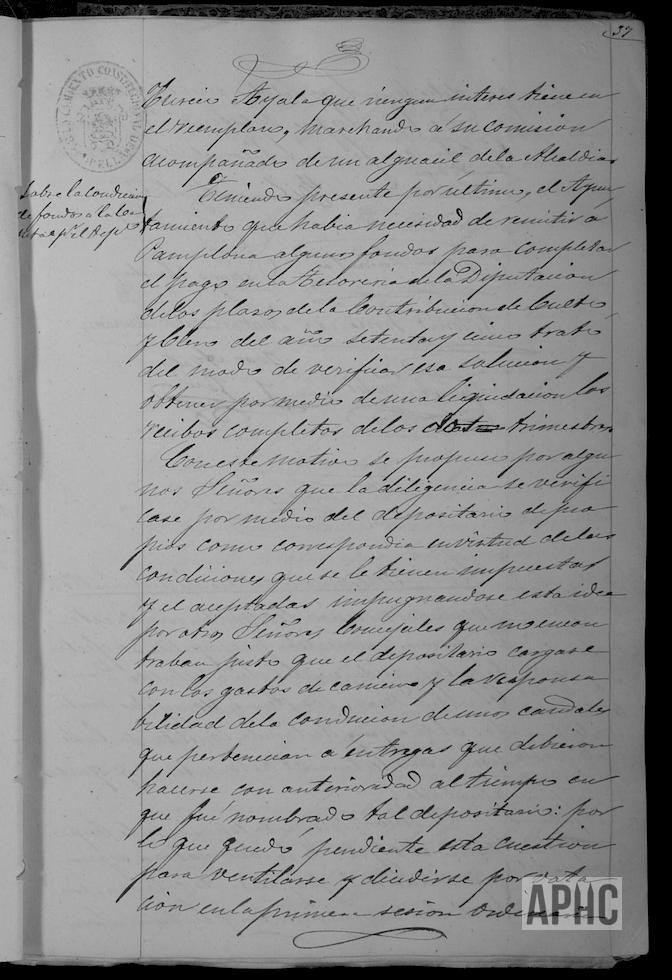 37
AYUNTAMIENTO CONSTITUCIONAL DE
Ayala que ningun interes tiene en
el reemplazo, marchando á su comision
acompañado de un alguacil de la Alcaldia
Sobre la conducion
de fondos a la
Teniendo presente por último, el Ayun
tamiento que habia necesidad de remitir á
Pamplona algunos fondos para completar
el pago en la Tesoreria de la Diputacion
de los plazos de la Contribucion de Culto
y Clero del año setenta y cinco trató
del modo de verificar esa solucion y
obtener por medio de una liquidacion los
recibos completos de los trimestres
Con este motivo se propuso por algu
nos Señores que la diligencia se verifi
case por medio del depositario de pro
pios como correspondia en virtud de las
condiciones que se le tienen impuestas
y el aceptadas impugnandose esta idea
por otros Señores Concejales que no encon
traban justo que el depositario cargase
con los gastos de camino y la responsa
bilidad de la conducion de unos caudales
que pertenecian a entregas que debieron
hacerse con anterioridad al tiempo en
que fué nombrado tal depositario: por
lo que quedó pendiente esta cuestion
para ventilarse y decidirse por vota
cion en la primera sesion ordinaria
APHC